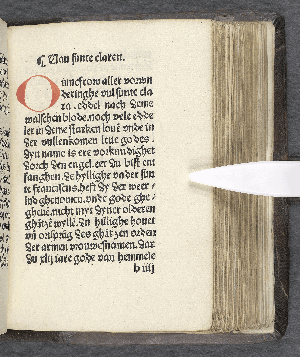 ¶ Van sunte claren.
O iuncfrow aller vorwn
deringhe vul sunte cla
ra. eddel nach deme
walschen blode. noch vele edde
ler in deme starken loue vnde in
der vullenkomen leue godes.
Dyn name is ere vorkundighet
dorch den engel. eer du bist ent
fanghen. De hyllighe vader sun
te franciscus. heft dy der wer
lnd ghenomen. vnde gode ghe
gheuē. nicht myt dyner olderen
wyllē. Du hillighe houet
des orden
der armen vrouwesnamen. Dar
du xlij iare gode van hemmele
b iiij